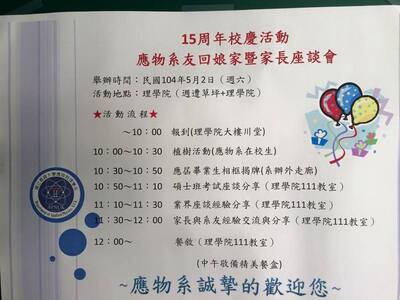 15周年校慶活動
應物系友回娘家暨家長座談會
舉辦時間：民國104年5月2日（週六）
活動地點：理學院（週遭草坪+理學院）
★活動流程★
～10：00 報到(理學院大樓川堂)
10：00～10：30 植樹活動(應物系在校生)
10：30～10：50 應屆畢業生相框揭牌(系辦外走廊)
10：50～11：10 碩士班考試座談分享（理學院111教室）
11：10～11：30 業界座談經驗分享（理學院111教室）
11：30～12：00 家長與系友經驗交流與分享（理學院111教室）
12：00～ 餐敘（理學院111教室）
（中午敬備精美餐盒）
~應物系誠摯的歡迎您~